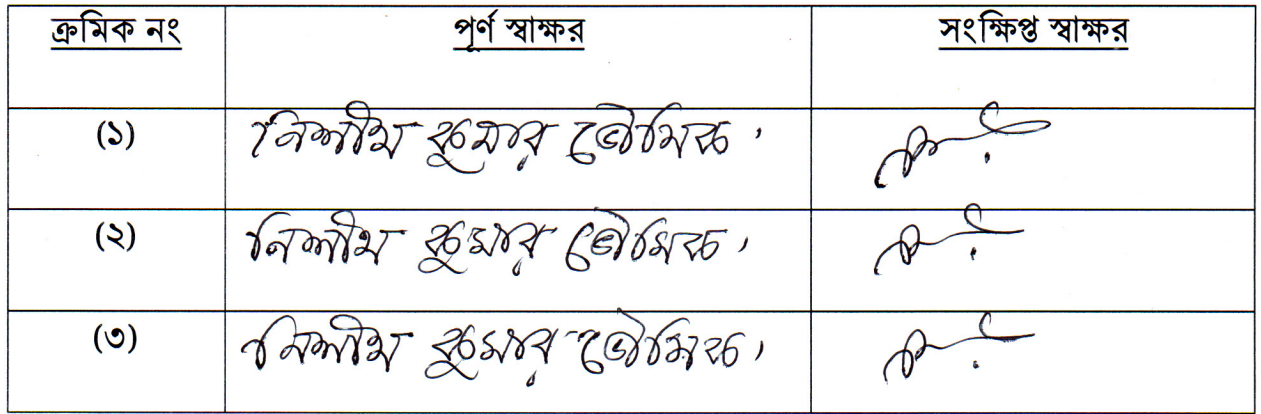 ক্রমিক নং পূর্ণ স্বাক্ষর সংক্ষিপ্ত স্বাক্ষর
(১) নিশীথ কুমার ভৌমিক
(২) নিশীথ কুমার ভৌমিক
(৩) নিশীথ কুমার ভৌমিক